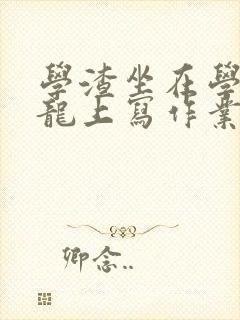 學渣坐在學
龍上寫作業
卿念..